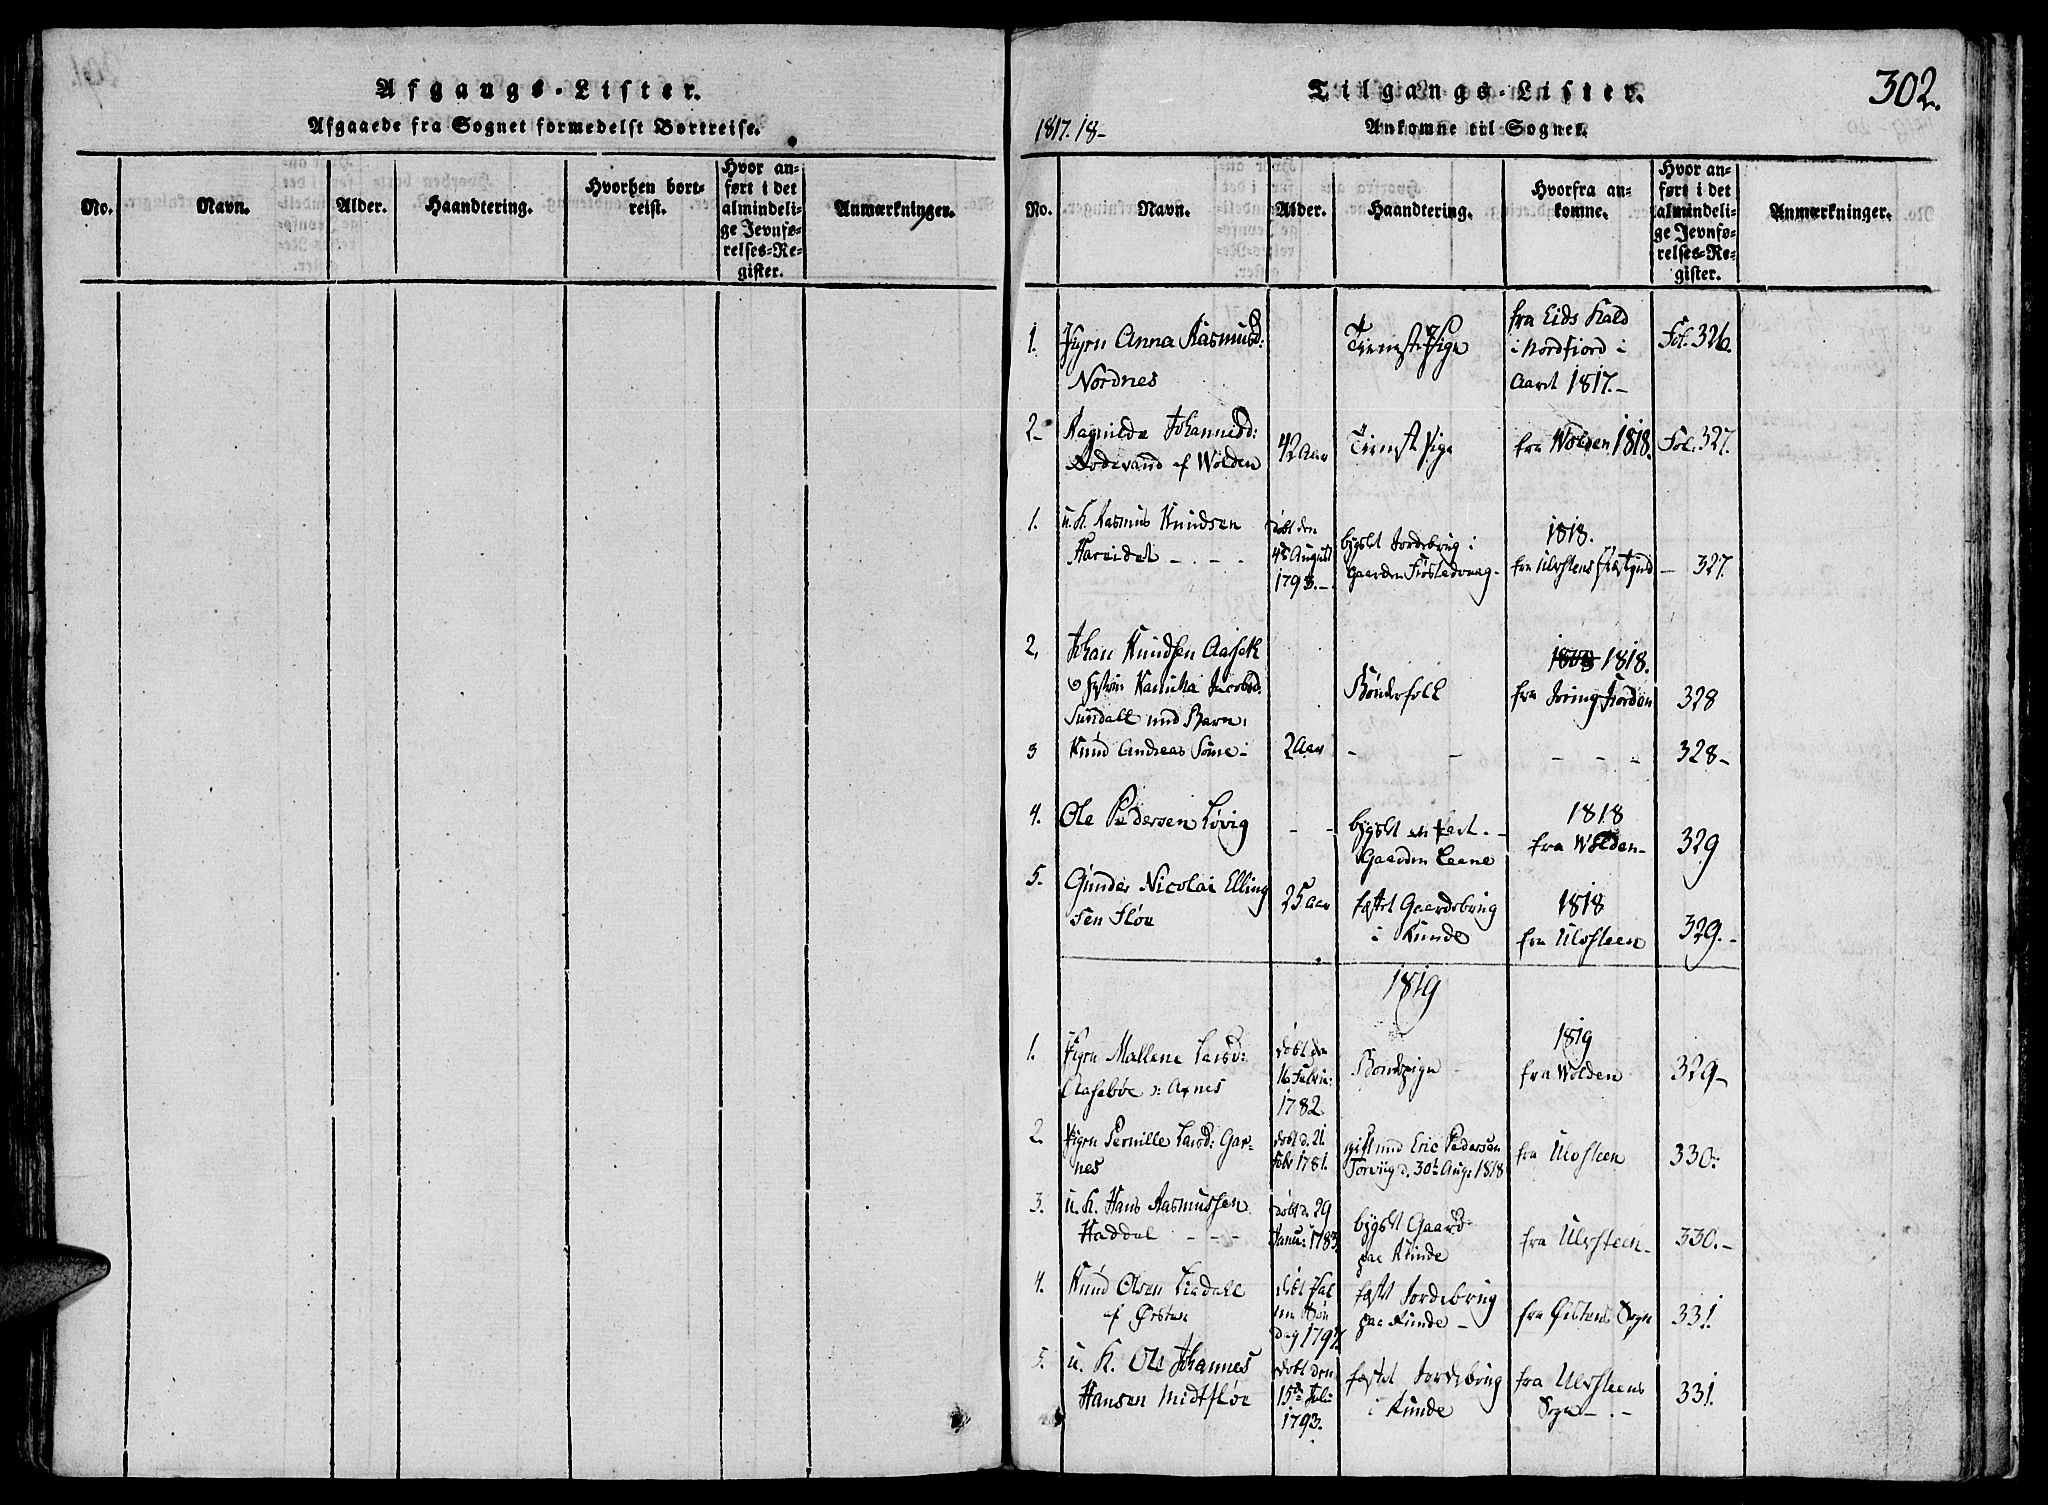 Afgangs-Lister.
Afgaaede fra Sognet formedelst Bortreise.
No.
Navn.
Alder.
Haandtering.
Hvorhen bort-
reist.
Hvor an-
ført i det
almindeli-
ge Jevnfø-
relses-Re-
gister.
Anmærkninger.
302.
Tilgangs-Lister.
1817.18-
Ankomne til Sognet.
No.
Navn.
Alder.
Haandtering.
Hvorfra an-
komne.
Hvor an-
ført i det
almindeli-
ge Jevnfø-
relses-Re-
gister.
Anmærkninger.
1. Pigen Anna Rasmusd:
Nordnes
Tienestepige
fra Eids Kald
i Nordfiord i
Aaret 1817.-
Fol. 326.
2- Ragnilde Johannisd:
af Wolden
42 Aar
Tienestpige
fra Wolden 1818.
Fol. 327.
1. u. K. Rasmus Knudsen
Hareidet - - -
døbt den
4de August
1793.-
bygslet Jordebrug i
Gaarden
1818.
fra Ulvsteens
- 327.
2, Johan Knudsen Aasek
Jacobsd.
med Barn:
Bønderfolk
1818.
fra Jøring Fiorden
328
3 Knud Andreas
2 Aar
- - - - -
328-
4. Ole Pedersen Løvig
- -
bygslet en Part
Gaarden Leene
1818
fra Wolden-
329
5. Gunder Nicolai Elling
sen Fløe
25 Aar
fæstet Gaardebrug
i Runde
1818
fra Ulvsteen
329.-
1819
1. Pigen Mallene Larsd:
Aasebøe
døbt den
16
1782
Bondepige
1819
fra Wolden
329-
2. Pigen Pernille Larsd: Gar-
nes
døbt d. 21
Febr 1781.
gift med Eric Pedersen
Torviig d. 30te Aug: 1818
fra Ulvsteen
330:
3. u. K. Hans Rasmussen
Haddal - - -
døbt d. 29
Janu: 1783
bygslet Gaard
paa Runde
fra Ulvsteen-
330.-
4. Knud Olsen Liadall
af Ørsten
døbt Pal
me Søn
dag 1797.
fæstet Jordebrug
paa Runde -
fra Ørstens Sogn
331.
5. u. K. Ole Johannes
Hansen Midtfløe
døbt den
15de Febr
1793.
fæstet Jordebrug
i Runde
fra Ulvsteens
Sogn - . -
331.